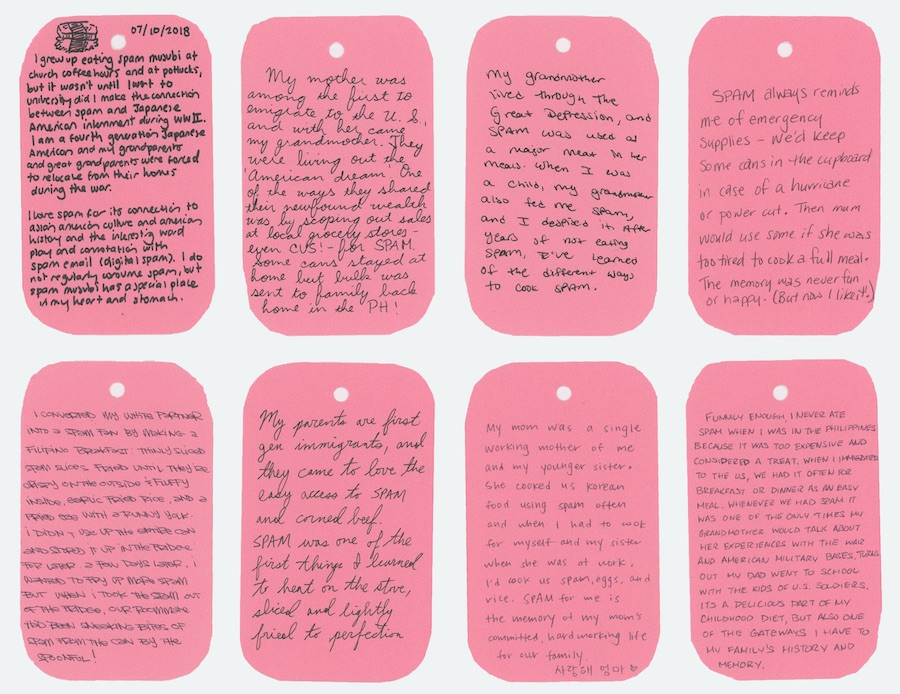 07/10/2018
I grew up eating spam musubi at
church coffee hours and at potlucks,
but it wasn't until I went to
university did I make the connection
between spam and Japanese
American internment during WWII.
I am a fourth generation Japanese
American and my grandparents
and great grandparents were forced
to relocate from their homes
during the war.
I love spam for its connection to
asian american culture and american
history and the interesting word
play and connotation with
spam email (digital spam). I do
not regularly consume spam, but
spam musubi has a special place
in my heart and stomach.
My mother was
among the first to
emigrate to the U.S.,
and with her came
my grandmother. They
were living out the
'American dream'. One
of the ways they shared
their newfound wealth
was by scoping out sales
at local grocery stores -
even CVS! - for SPAM.
Some cans stayed at
home but bulk was
sent to family back
home in the PH!
My grandmother
lived through the
Great Depression, and
SPAM was used as
a major meat in her
meals. When I was
a child, my grandmother
also fed me spam,
and I despised it. After
years of not eating
spam, I've learned
of the different ways
to cook SPAM.
SPAM always reminds
me of emergency
supplies - we'd keep
some cans in the cupboard
in case of a hurricane
or power cut. Then mum
would use some if she was
too tired to cook a full meal.
The memory was never fun
or happy. (But now I like it!)
I CONVERTED MY WHITE PARTNER
INTO A SPAM FAN BY MAKING A
FILIPINO BREAKFAST: THINLY SLICED
SPAM SLICES FRIED UNTIL THEY'RE
CRISPY ON THE OUTSIDE & FLUFFY
INSIDE, GARLIC FRIED RICE, AND A
FRIED EGG WITH A RUNNY YOLK.
I DIDN'T USE UP THE ENTIRE CAN
AND STORED IT UP IN THE FRIDGE
FOR LATER. A FEW DAYS LATER, I
WANTED TO FRY UP MORE SPAM
BUT WHEN I TOOK THE SPAM OUT
OF THE FRIDGE, OUR ROOMMATE
HAD BEEN SNEAKING BITES OF
SPAM FROM THE CAN BY THE
SPOONFUL!
My parents are first
gen immigrants, and
they came to love the
easy access to SPAM
and corned beef.
SPAM was one of the
first things I learned
to heat on the stove,
sliced and lightly
fried to perfection
My mom was a single
working mother of me
and my younger sister.
She cooked us Korean
food using spam often
and when I had to cook
for myself and my sister
when she was at work,
I'd cook us spam, eggs, and
rice. SPAM for me is
the memory of my mom's
committed, hardworking life
for our family.
사랑해 엄마 ♡
FUNNILY ENOUGH, I NEVER ATE
SPAM WHEN I WAS IN THE PHILIPPINES
BECAUSE IT WAS TOO EXPENSIVE AND
CONSIDERED A TREAT. WHEN I IMMIGRATED
TO THE US, WE HAD IT OFTEN FOR
BREAKFAST OR DINNER AS AN EASY
MEAL. WHENEVER WE HAD SPAM IT
WAS ONE OF THE ONLY TIMES MY
GRANDMOTHER WOULD TALK ABOUT
HER EXPERIENCES WITH THE WAR
AND AMERICAN MILITARY BASES. TURNS
OUT MY DAD WENT TO SCHOOL
WITH THE KIDS OF U.S. SOLDIERS.
ITS A DELICIOUS PART OF MY
CHILDHOOD DIET, BUT ALSO ONE
OF THE GATEWAYS I HAVE TO
MY FAMILY'S HISTORY AND
MEMORY.